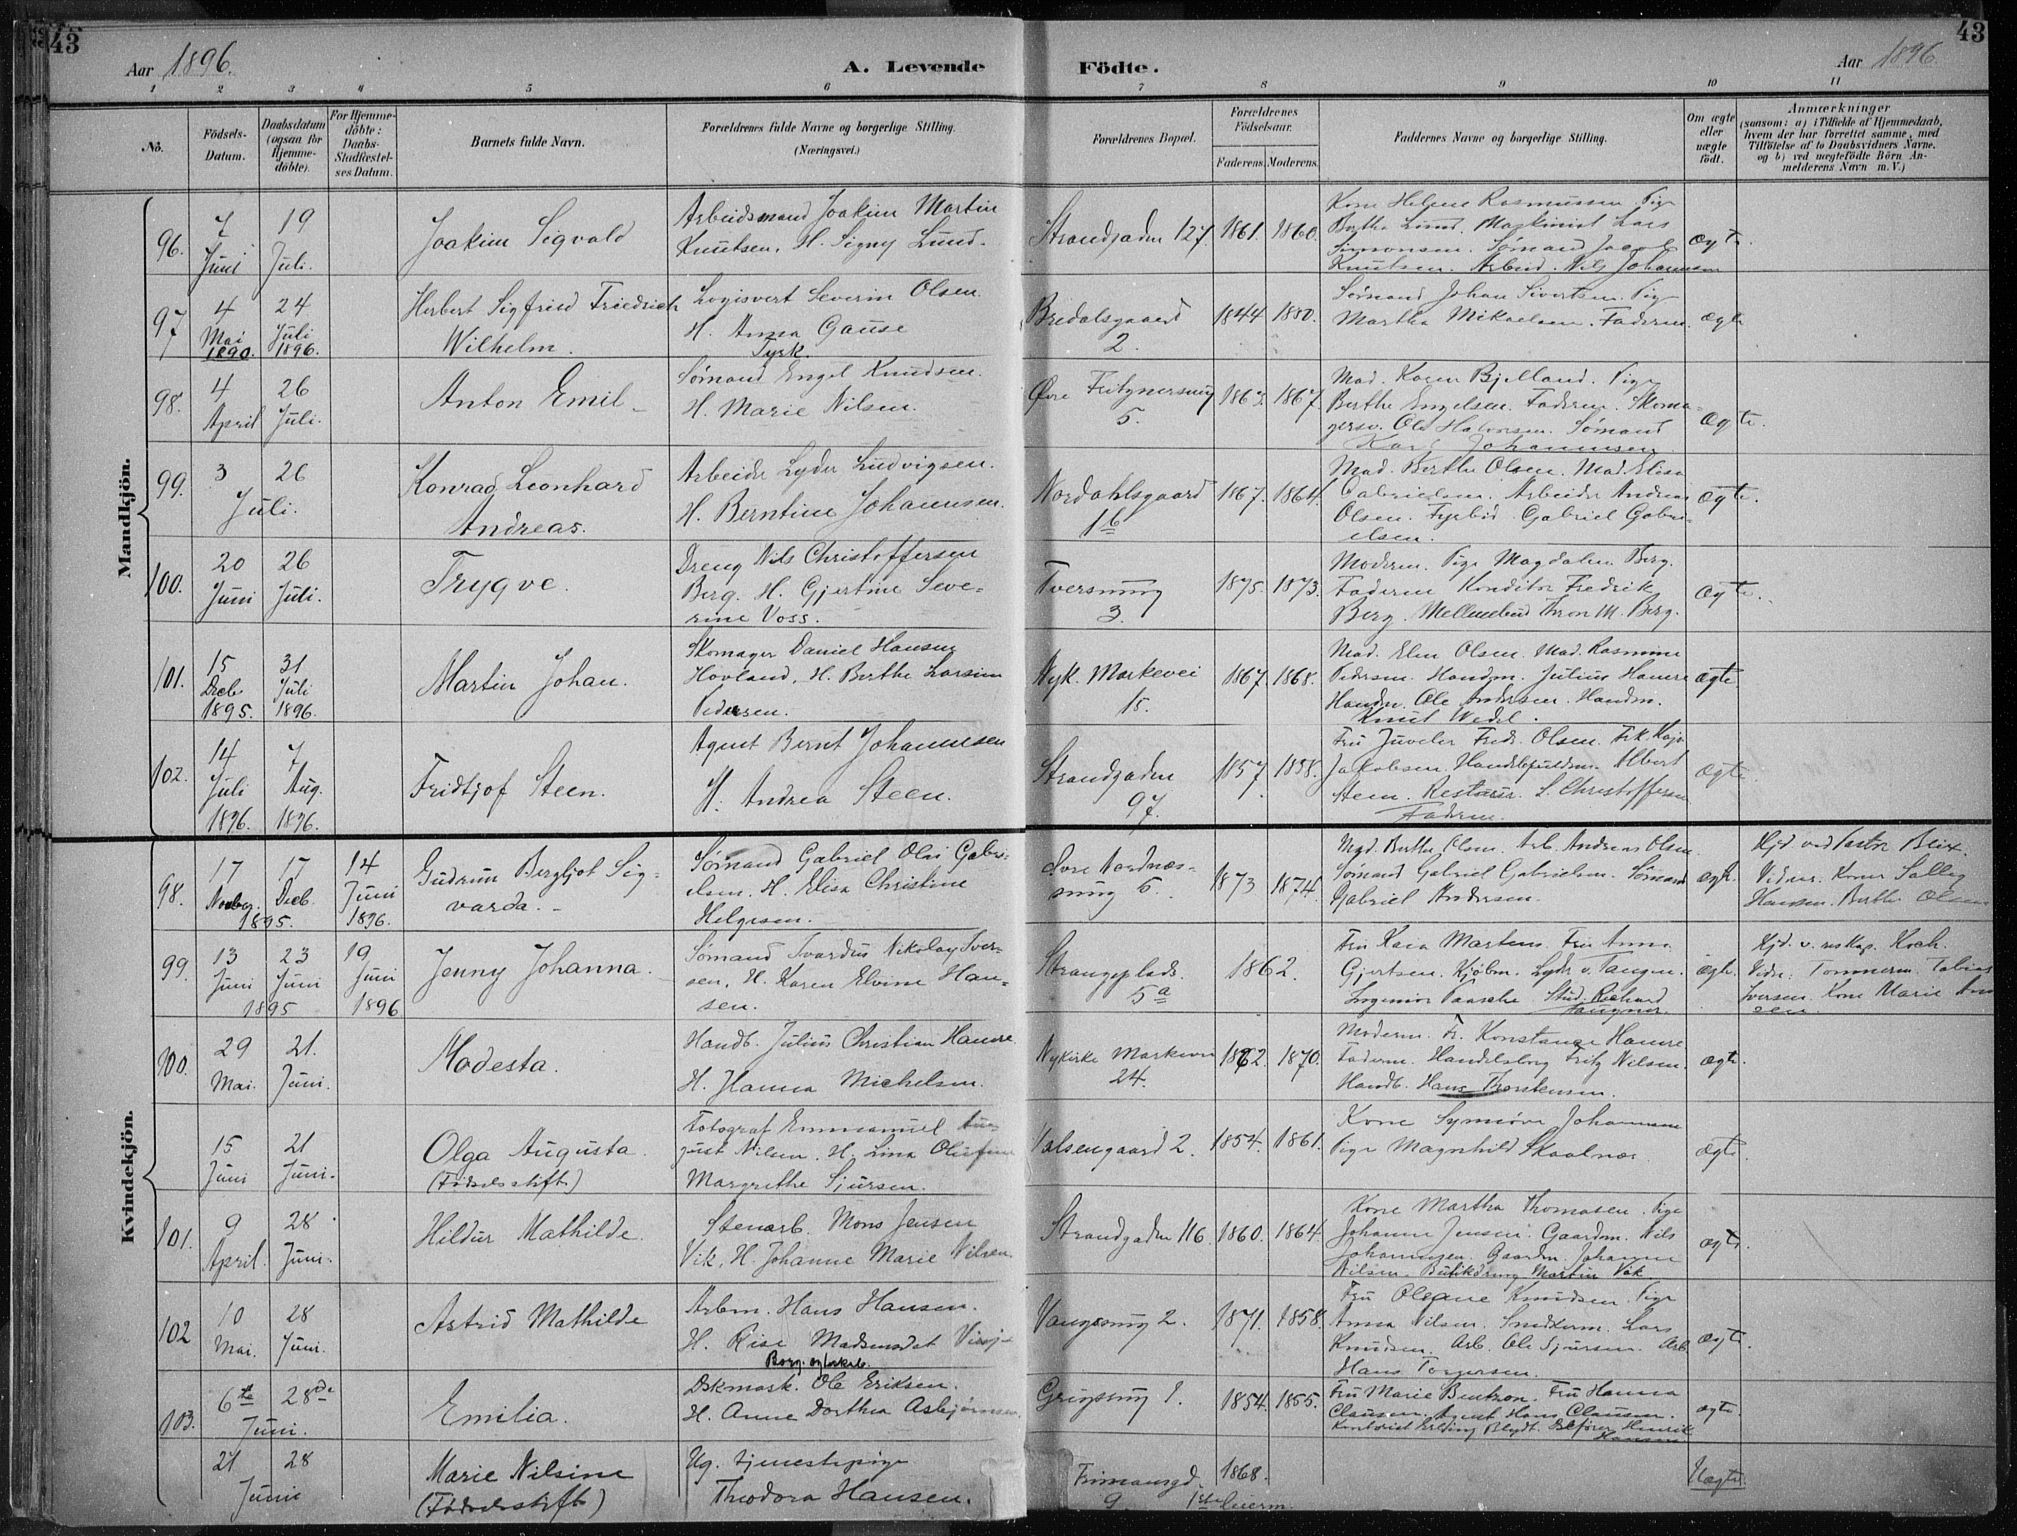 43
43
Aar 1896.
A. Levende Födte.
Aar 1896
1 2 3 4 5 6 7 8 9 10 11
No.
Födsels-Datum.
Daabsdatum (ogsaa for Hjemme-döbte).
For Hjemme-döbte: Daabs-Stadfæstel-ses Datum.
Barnets fulde Navn.
Forældrenes fulde Navne og borgerlige Stilling.
(Næringsvei.)
Forældrenes Bopæl.
Forældrenes Födselsaar.
Faderens. Moderens.
Faddernes Navne og borgerlige Stilling.
Om ægte eller uægte födt.
Anmærkninger
(saasom: a) i Tilfælde af Hjemmedaab, hvem der har forrettet samme, med Tilföielse af to Daabsvidners Navne, og b) ved uægtefödte Börn An-melderens Navn m. V.)
Mandkjön.
96.
7 Juni
19 Juli.
Joakim Sigvald
Arbeidsmand Joakim Martin
Knutsen. H. Signy Lund.
Strandgaden 127
1861. 1860.
Kone Helene Rasmussen. Pige
Berthe Lund. Maskinist Lars
Simonsen. Sømand Jacob
Knutsen. Arbeid. Nils Johannesen
Ægte.
97
4 Mai 1890.
24 Juli 1896.
Herbert Sigfried Friedrich
Wilhelm.
Logisvert Severin Olsen.
H. Anna Gause
Tysk.
Bredalsgaard
2.
1844 1850.
Sømand Johan Sivertsen. Pige
Martha Mikaelsen. Faderen.
Ægte
98.
4 April
26 Juli.
Anton Emil
Sømand Engel Knudsen.
H. Marie Nilsen.
Øvre Fritznersmug
5.
1863. 1867.
Mad. Karen Bjelland. Pige
Berthe Engelsen. Faderen. Skoma-
gersv. Ole Halvorsen. Sømand
Johannesen
Ægte.
99.
3 26
Juli.
Konrad Leonhard
Andreas.
Arbeider Lyder Ludvigsen.
H. Berntine Johannesen.
Nordahlsgaard
1b
1867. 1864.
Mad. Berthe Olsen. Mad. Elisa
Gabrielsen. Arbeider Andreas
Olsen. Fyrbød. Gabriel Gabri-
elsen.
Ægte.
100.
20 Juni
26 Juli.
Trygve.
Dreng Nils Christoffersen
Berg. H. Gjertine Seve-
rine Voss.
Tversmug
3.
1875. 1873.
Moderen. Pige Magdalen Berg.
Faderen Konditor Fredrik
Berg. M. Berg.
Ægte.
101.
15 Decb. 1895.
31 Juli 1896.
Martin Johan.
Skomager Daniel Hansen
Hovland, H. Berthe Larsine
Pedersen.
Nyk. Markevei
15.
1867. 1868.
Mad. Elen Olsen. Mad. Rasmine
Pedersen. Handm. Julius Hamre
Handm. Ole Andersen. Handm.
Knut Wedel.
Ægte
102.
14 Juli 1896.
7 Aug. 1896.
Fridtjof Steen.
Agent Bernt Johannesen
H. Andrea Steen.
Strandgaden
97.
1857. 1858.
Fru Juveler Fredr. Olsen. Frk. Kaja
Jakobsen. Handelsfuldm. Albert
Steen. Restaur. S. Christoffersen
Faderen.
Ægte.
Kvindekjön.
98.
17 Novbr. 17 Decb. 1895.
14 Juni 1896.
Gudrun Bergljot Sig-
varda.
Sømand Gabriel Olai Gabri-
elsen. H. Elisa Christine
Helgesen.
Øvre Nordnæs-
smug 6.
1873 1874.
Mad. Berthe Olsen. Arb. Andreas Olsen.
Sømand Gabriel Gabrielsen. Sømand
Gabriel Andersen.
Ægte.
Hjd ved Pastor Beix.
Vidner. Kone Solleg
Hansen. Berthe Olsen
99.
13 Juni 23 Juni 1895
19 Juni 1896
Jenny Johanna.
Sømand Svardus Nikolay Iver-
sen, H. Karen Elvine Han-
sen.
Strangeplads.
5a
1862.
Fru Kaia Martens. Fru Anna
Gjertsen. Kjøbm. Lyder v. Tangen.
Ingeniør Paasche. Stud. Richard
Ægte.
Hjd. v. res. Kap. Koch.
Vidn. Tømmerm. Tobias
Iversen. Kone Marie
100.
29 Mai.
21. Juni.
Modesta.
Handb. Julius Christian Hamre
H. Hanna Michelsen.
Nykirke Markevei
24.
1862. 1870.
Moderen. Fr. Konstanse Hamre
Faderen. Handelsborg. Fritz Nilsen.
Handb. Hans Thorstensen.
Ægte.
15 Juni
21 Juni.
Olga Augusta.
(Fødselsstift.)
Fotograf Emmanuel Au-
gust Nilsen. H. Lina Olufine
Margrethe Sjursen.
Valsengaard 2.
1854. 1861.
Kone Synnøve Johannesen
Pige Magnhild Skaalnes
Ægte.
101.
9 April.
28 Juni.
Hildur Mathilde.
Stenarb. Mons Jensen
Vik, H. Johanne Marie Nilsen.
Strandgaden 116.
1860. 1864.
Kone Martha Thomasen. Pige
Johanne Jensen. Gaardm. Nils
Johannesen. Gaardm. Johannes
Nilsen. Butikdreng Martin Vik.
Ægte.
102
10 Mai.
28 Juni.
Astrid Mathilde
Arbm. Hans Hansen.
H. Rise Madsensdat
Vangsmug 2.
1871. 1858.
Fru Oleane Knudsen. Pige
Anna Nilsen. Snedkerm. Lars
Knudsen. Arb. Ole Sjursen. Arb.
Hans Torgersen.
Ægte.
103.
6te 28de
Juni.
Emilia.
Borg. og
Dskmask. Ole Eriksen.
H. Anne Dorthea Asbjørnsen.
Grigsmug 1.
1854. 1855.
Fru Marie Bentzon. Fru Hanna
Clausen. Agent Hans Clausen.
Erling Blydt. Henrik
Hansen
Ægte.
21 28
Juni
Marie Nilsine
(Fødselsstift)
Ug. tjenestepige
Theodora Hansen.
Frimansgd.
9.
1868.
1ste Leierm.
Uægte.